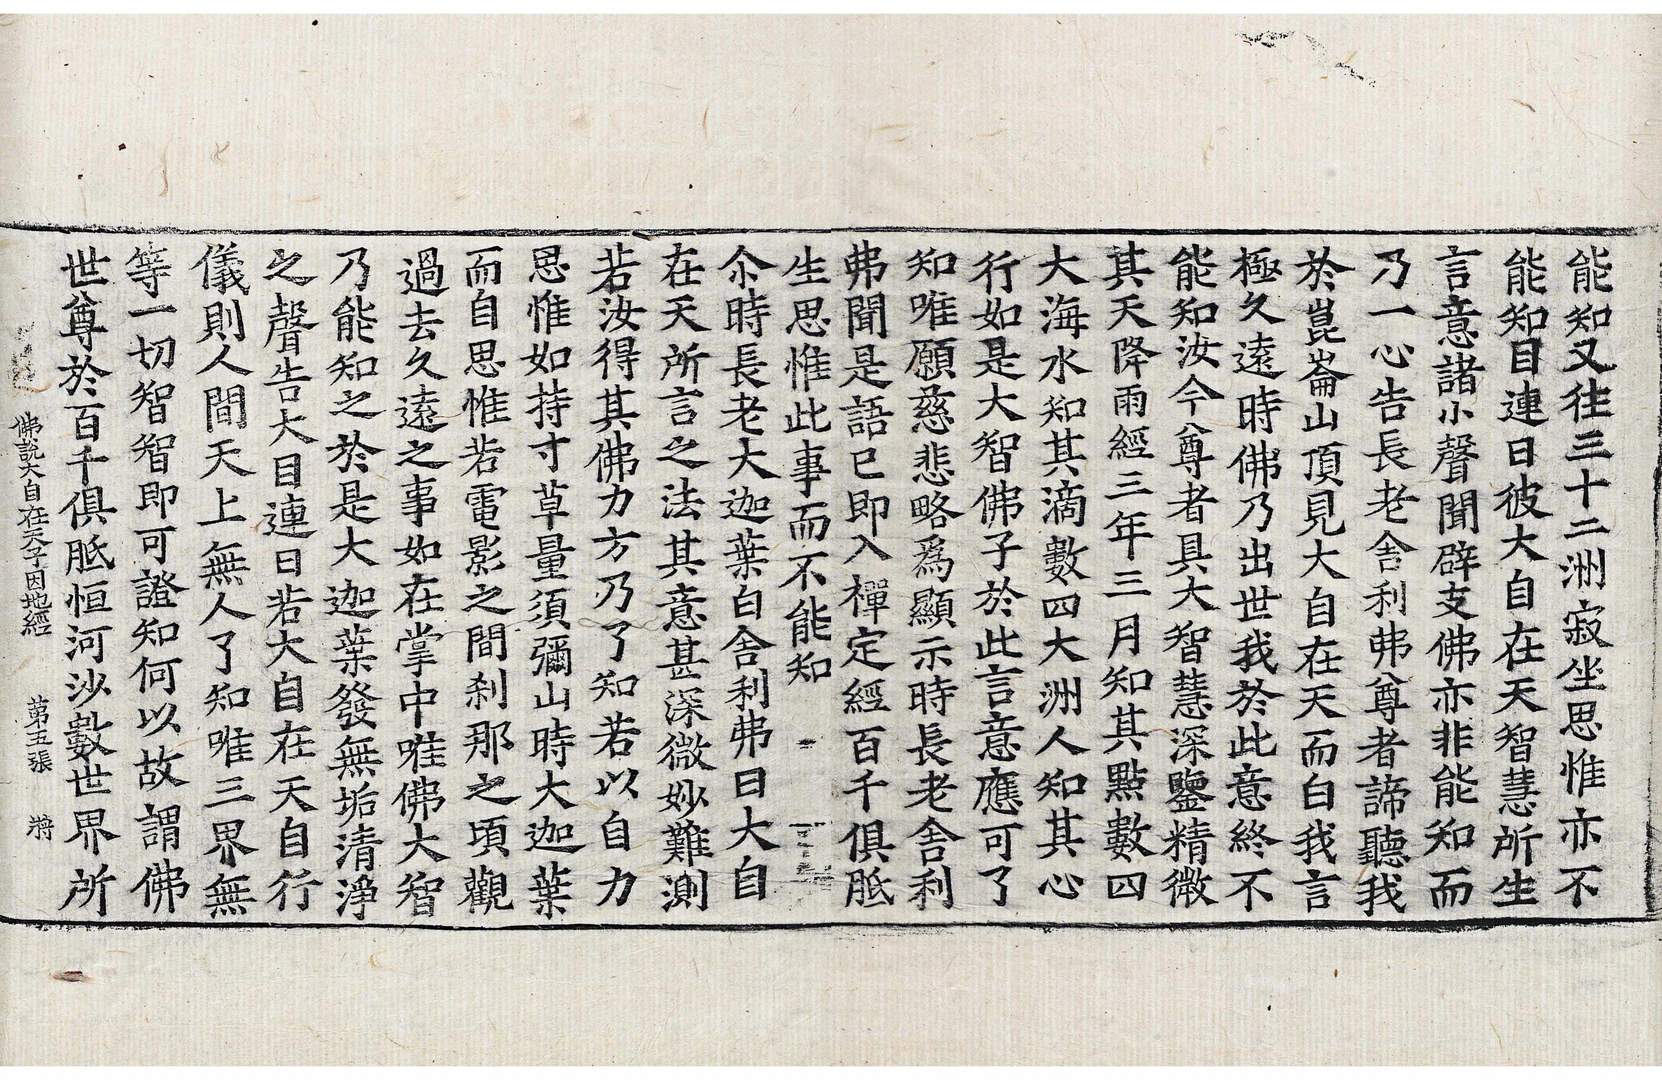 能知又往三十二洲寂坐思惟亦不
能知目連曰彼大自在天智慧所生
言意諸小聲聞辟支佛亦非能知而
乃一心告長老舍利弗尊者諦聽我
於崑崙山頂見大自在天而白我言
極久遠時佛乃出世我於此意終不
能知汝今尊者具大智慧深鑒精微
其天降雨經三年三月知其點數四
大海水知其滴數四大洲人知其心
行如是大智佛子於此言意應可了
知唯願慈悲略為顯示時長老舍利
弗聞是語已即入禪定經百千俱胝
生思惟此事而不能知
尒時長老大迦葉白舍利弗曰大自
在天所言之法其意甚深微妙難測
若汝得其佛力方乃了知若以自力
思惟如持寸草量須彌山時大迦葉
而自思惟若電影之間刹那之頃觀
過去久遠之事如在掌中唯佛大智
乃能知之於是大迦葉發無垢清淨
之聲告大目連曰若大自在天自行
儀則人間天上無人了知唯三界無
等一切智智即可證知何以故謂佛
世尊於百千俱胝恒河沙數世界所
佛說大自在天子因地經 第五張 將